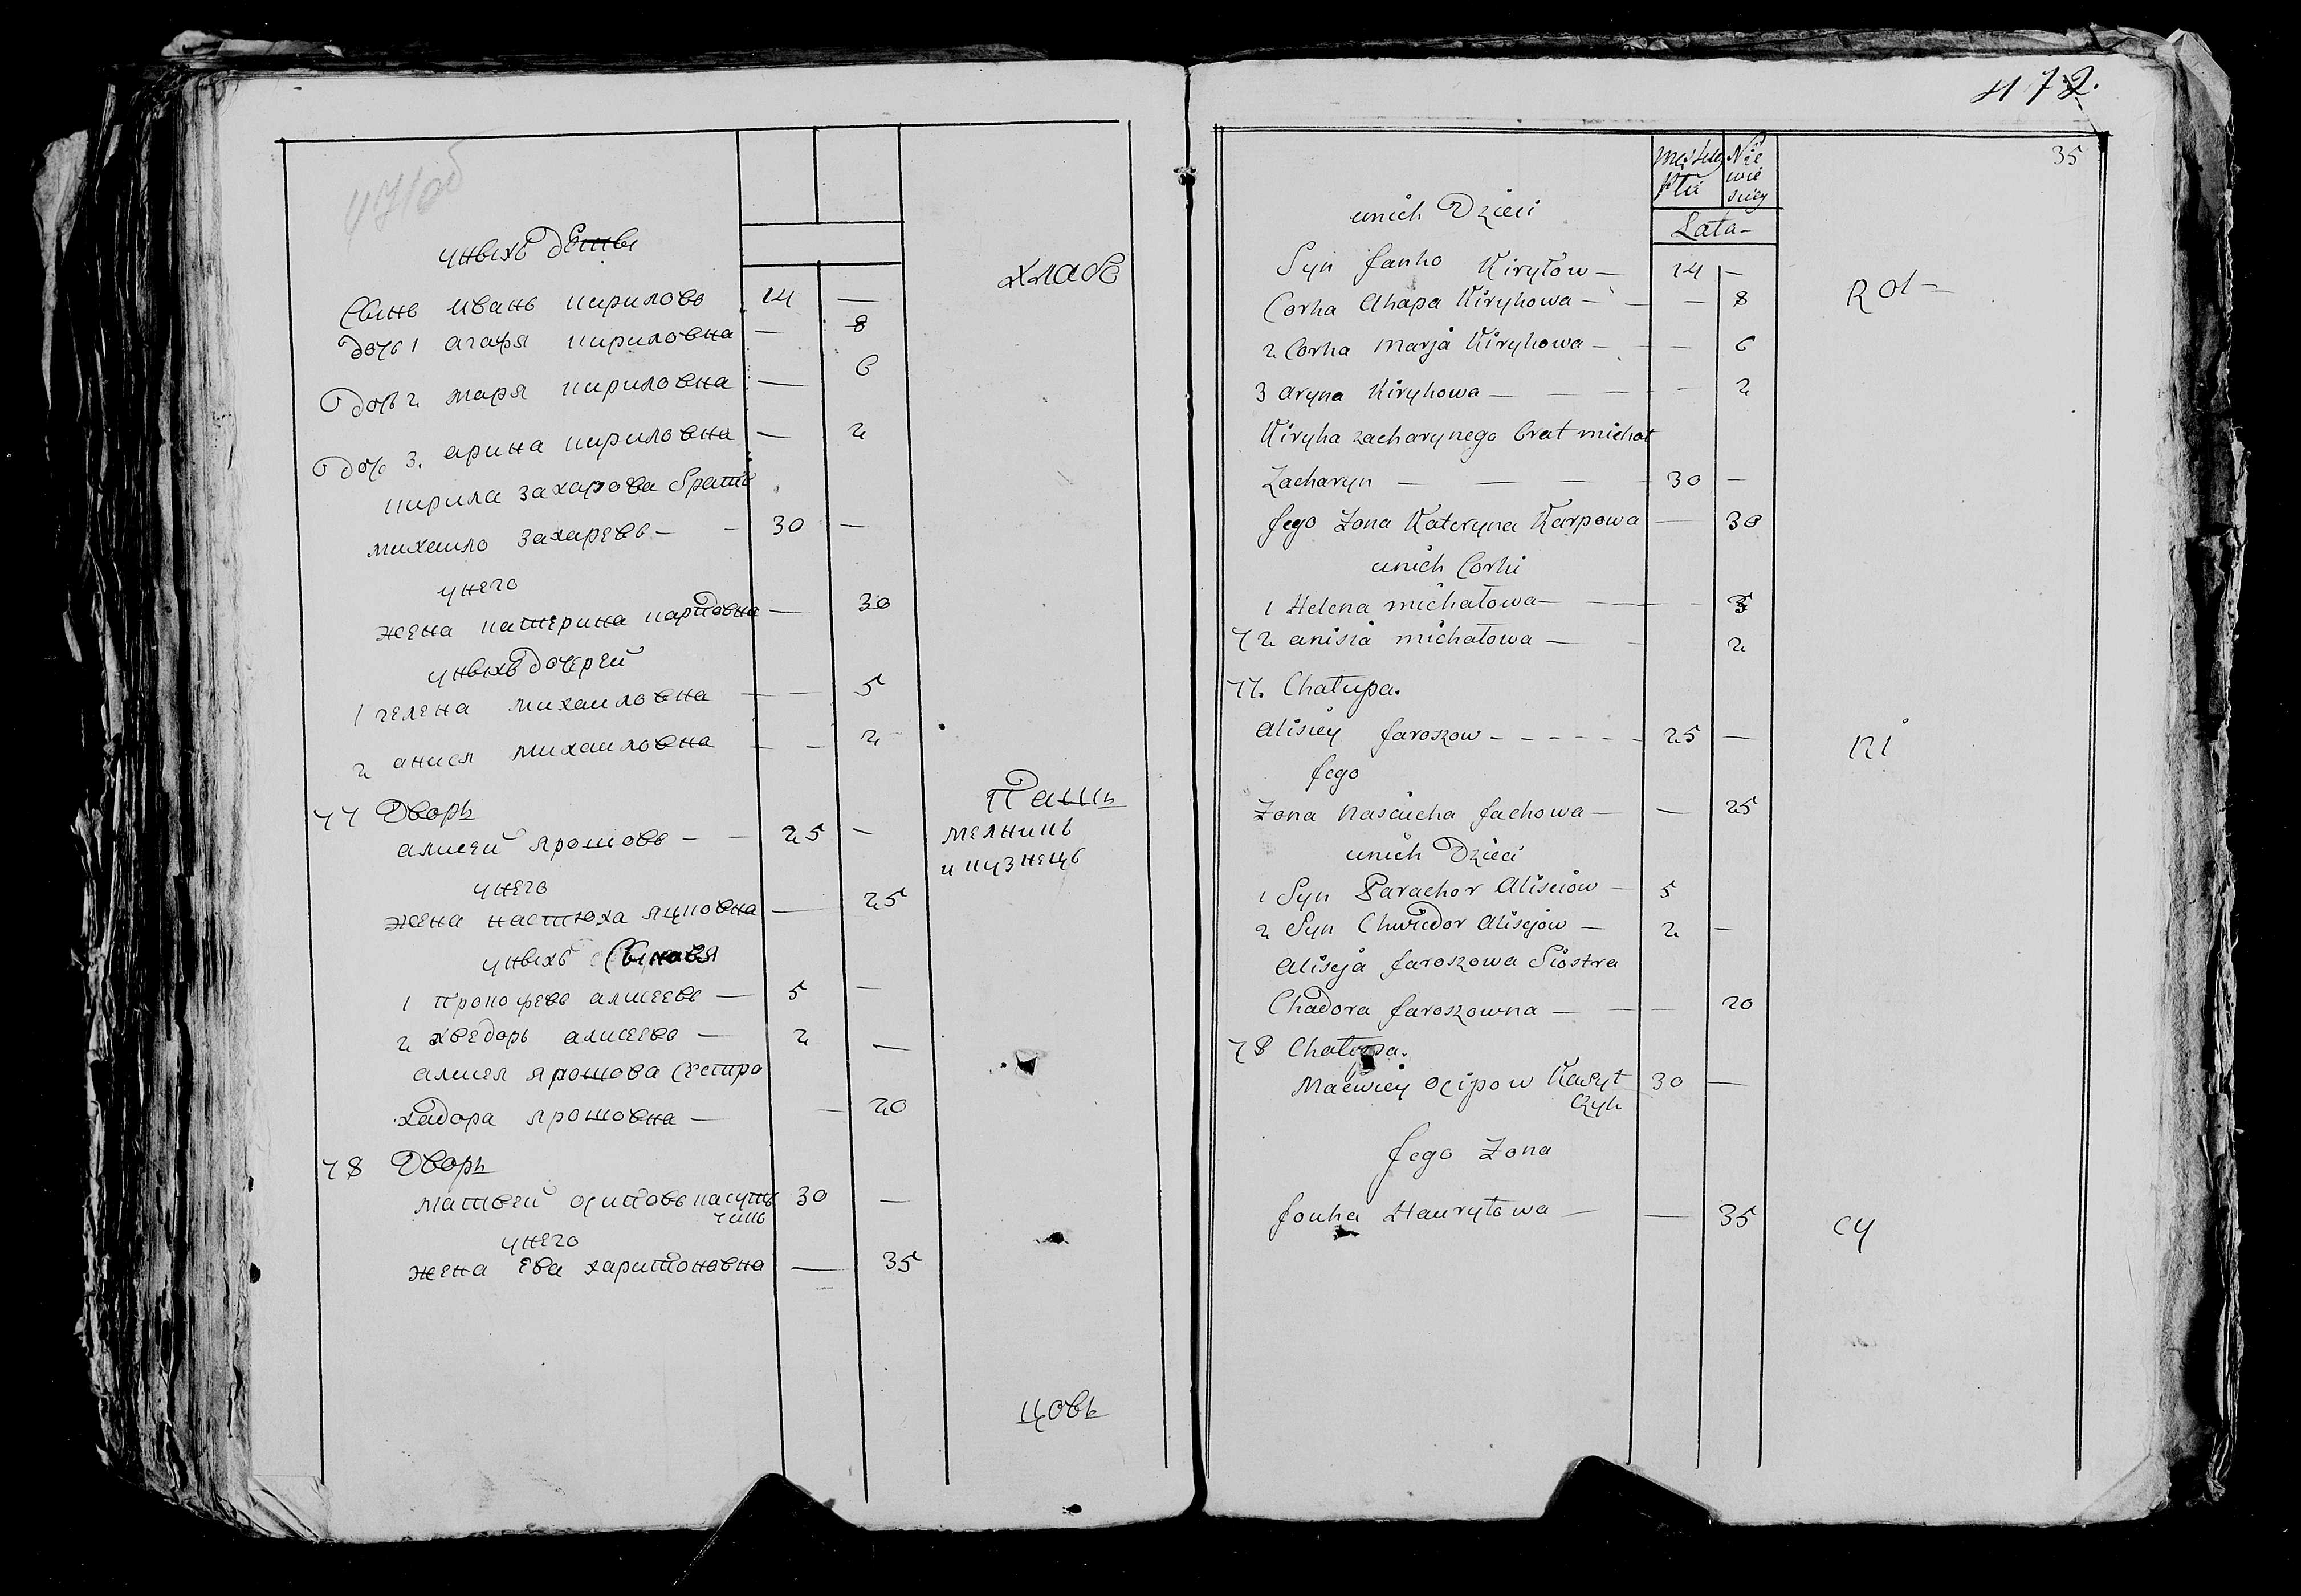 471об
уныхъ дѣти
хлаб
Сынъ иванъ кириловъ 14 —
дочь 1 агафя кириловна — 8
дочь 2 маря кириловна — 6
дочь 3. арина кириловна — 2
кирила захарова братъ
михаило захаревъ — — 30 —
унего
жена катерина карповна — 30
уныхъ дочерей
1 гелена михаиловна — — 5
2 анися михаиловна — — 2
77 Дворъ
Пашъ
алисей ярошовъ — — 25 —
мелникъ
и кузнецъ
унего
жена настюха яцковна — 25
уныхъ Сыновя
1 прокофевъ алисеевъ — 5 —
2 хведоръ алисеевъ — 2 —
алисея ярошова сестра
хадора ярошовна — — 20
78 Дворъ
матвей осиповъ касут 30 —
чикъ
унего
жена ева харитоновна — 35
цовъ
472.
35
męskiey
Płci
Nie
wie
sciey
Lata —
unich Dzieci
Syn Janko Kiryłow — 14 —
Rol —
Corka Ahapa Kirykowa — — — 8
2 Corka Marja Kirykowa — — 6
3 Aryna Kirykowa — — — — 2
Kiryka zacharynego brat michał
Zacharyn — — — — 30 —
Jego Zona Kateryna Karpowa — 30
unich Corki
1 Helena michałowa — — — 5
2 anisia michałowa — — 2
77. Chałupa.
Alisiey Jaroszow - - - - - - 25 —
ni
Jego
Zona Nasciucha Jackowa — — 25
unich Dzieci
1 Syn Parachor Alisciow — 5
2 Syn Chwiedor Alisejow — 2 —
Aliseja Jaroszowa Siostra
Chadora Jaroszowna — — — 20
78 Chałupa.
Maćwiey Ocipow Kasyt 30 —
czyk
Jego Zona
Jouka Haurytowa — — 35
cy